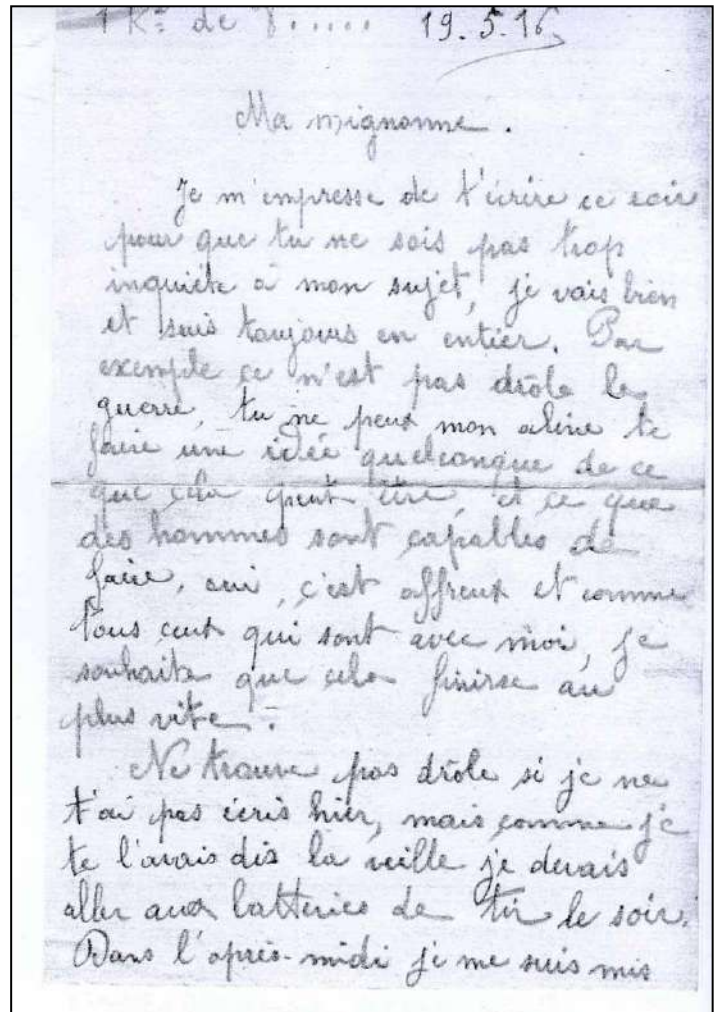 1 Km de V..... 19.5.16
Ma mignonne.
Je m'empresse de t'écrire ce soir
pour que tu ne sois pas trop
inquiète à mon sujet, je vais bien
et suis toujours en entier. Par
exemple ce n'est pas drôle la
guerre, tu ne peux mon aline te
faire une idée quelconque de ce
que cela peut être, et ce que
des hommes sont capables de
faire, oui, c'est affreux et comme
tous ceux qui sont avec moi, je
souhaite que cela finisse au
plus vite.
Ne trouve pas drôle si je ne
t'ai pas écris hier, mais comme je
te l'avais dis la veille je devais
aller aux batteries de tir le soir.
Dans l'après-midi je me suis mis